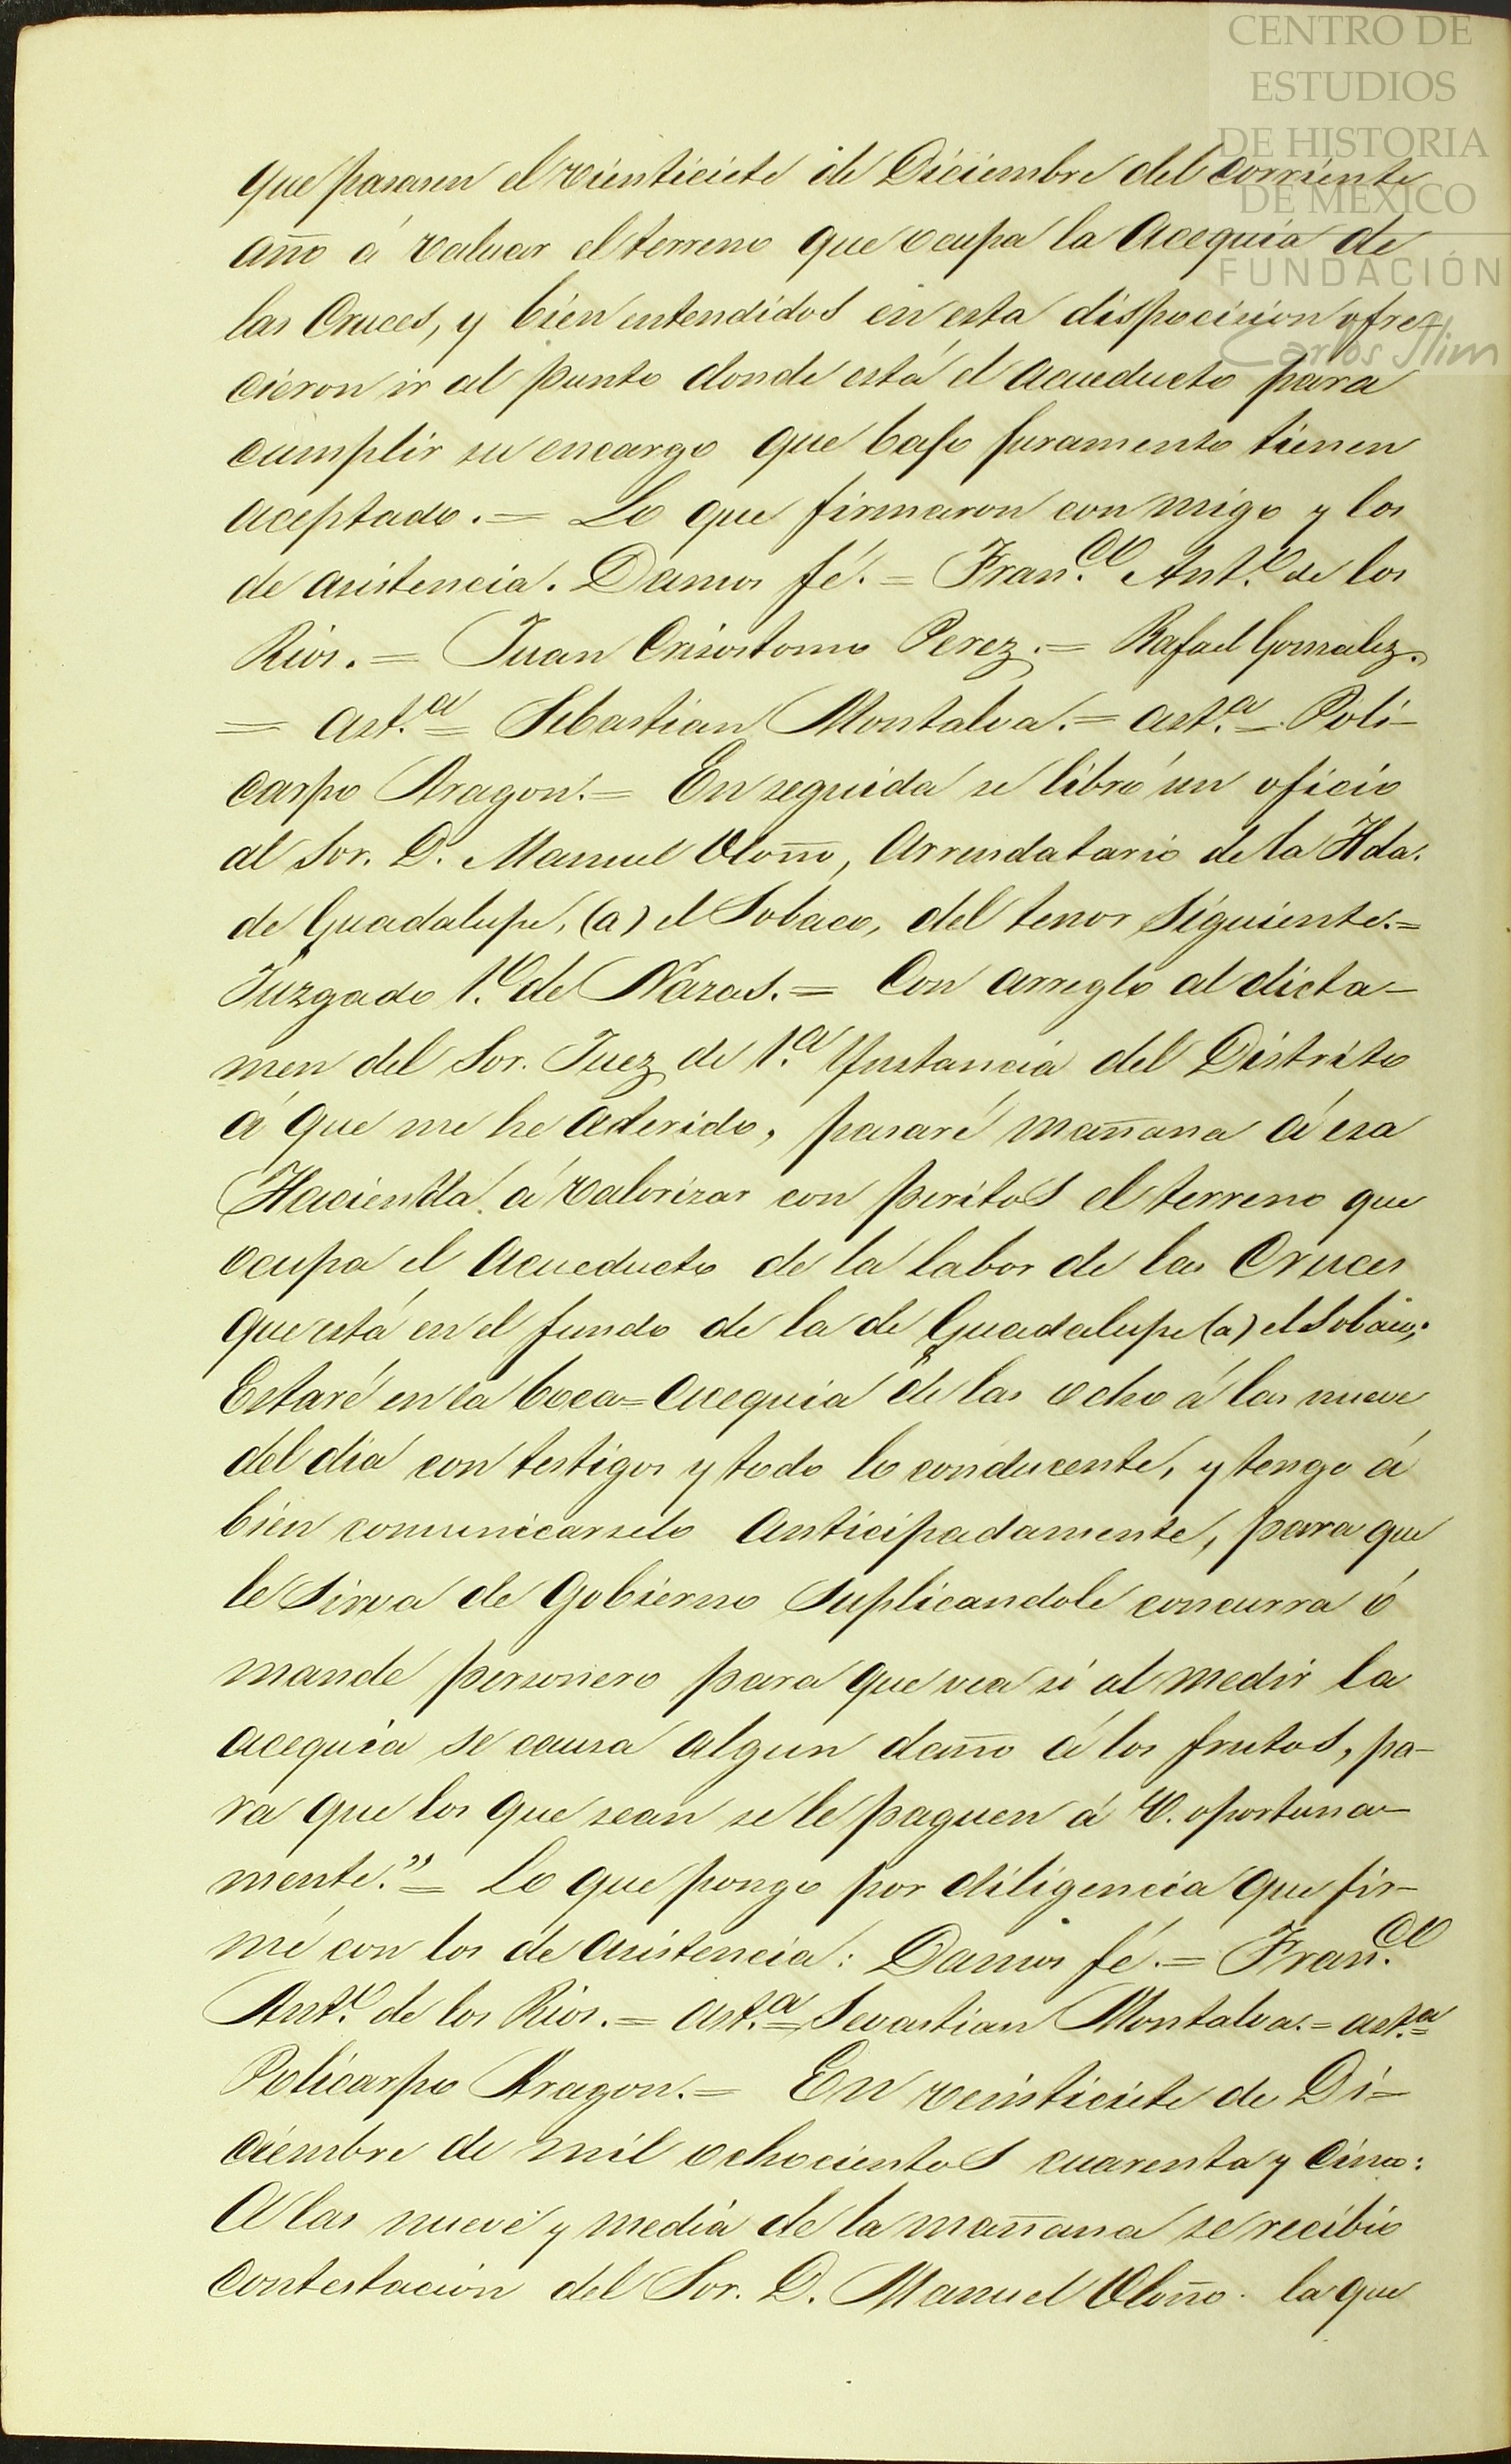 CENTRO DE
ESTUDIOS
DE HISTORIA
DE MÉXICO
FUNDACIÓN
Carlos Slim
que pasasen el vienticiete de Diciembre del corriente
año á valuar el terreno que ocupa la Acequia de
las Cruces, y bien entendidos en esta dispocicion ofre-
cieron ir al punto donde está el acueducto para
cumplir su encargo que bajo juramento tienen
aceptado.= Lo que firmaron con migo y los
de asistencia. Damos fé.= Fran.co Ant.o de los
Rios.= Juan Crisostomo Perez.= Rafael Gonzalez.
= ast.a= Sebastian Montalva.= ast.a=. Poli-
carpo Aragon.= En seguida se libró un oficio
al Sor. D. Manuel Oloño, Arrendatario de la Hda.
de Guadalupe, (a) el Sobaco, del tenor siguiente.=
Juzgado 1.o de Nazas.= Con arreglo al dicta-
men del Sor. Juez de 1.a Ynstancia del Distrito
á que me he aderido, pasaré mañana á esa
Hacienda á valorizar con peritos el terreno que
ocupa el Acueducto de la labor de las Cruces
que está en el fundo de la de Guadalupe (a) el Sobaco;
Estaré en la boca=acequia de las ocho á las nueve
del dia con testigos y todo lo conducente, y tengo á
bien comunicarselo anticipadamente, para que
le sirva de Gobierno suplicandole concurra ó
mande personero para que vea si al medir la
acequia se causa algun daño á los frutos, pa-
ra que los que sean se le paguen á V. oportuna-
mente."= Lo que pongo por diligencia que fir-
mé con los de asistencia: Damos fé.= Fran.co
Ant.o de los Rios.= ast.a= Sevastian Montalva.= ast.a=
Policarpo Aragon.= En veinticiete de Di-
ciembre de mil ochocientos cuarenta y cinco:
A las nueve y media de la mañana se recibio
contestacion del Sor. D. Manuel Oloño. la que